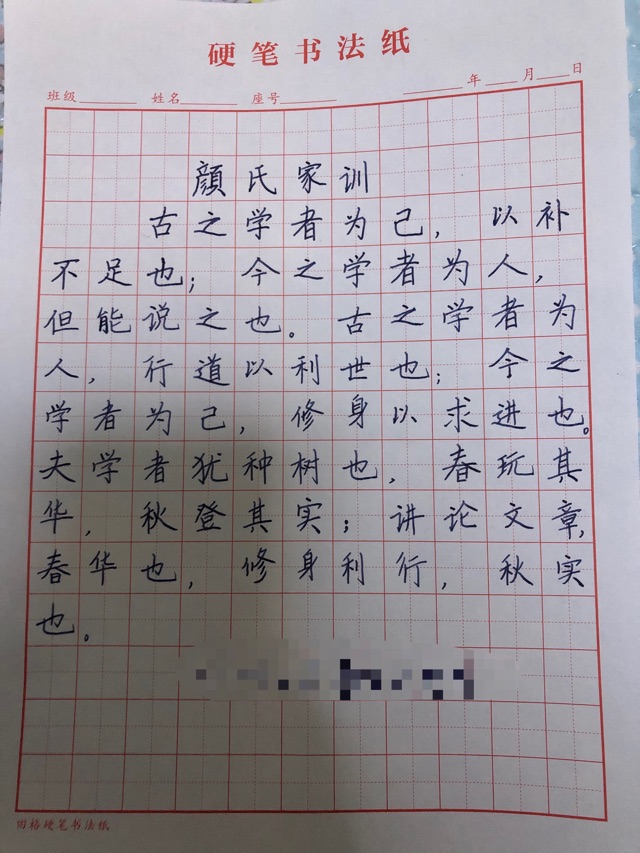 硬笔书法纸
班级 姓名 座号 年 月 日
颜氏家训
古之学者为己，以补
不足也；今之学者为人，
但能说之也。古之学者为
人，行道以利世也；今之
学者为己，修身以求进也。
夫学者犹种树也，春玩其
华，秋登其实；讲论文章，
春华也，修身利行，秋实
也。
田格硬笔书法纸